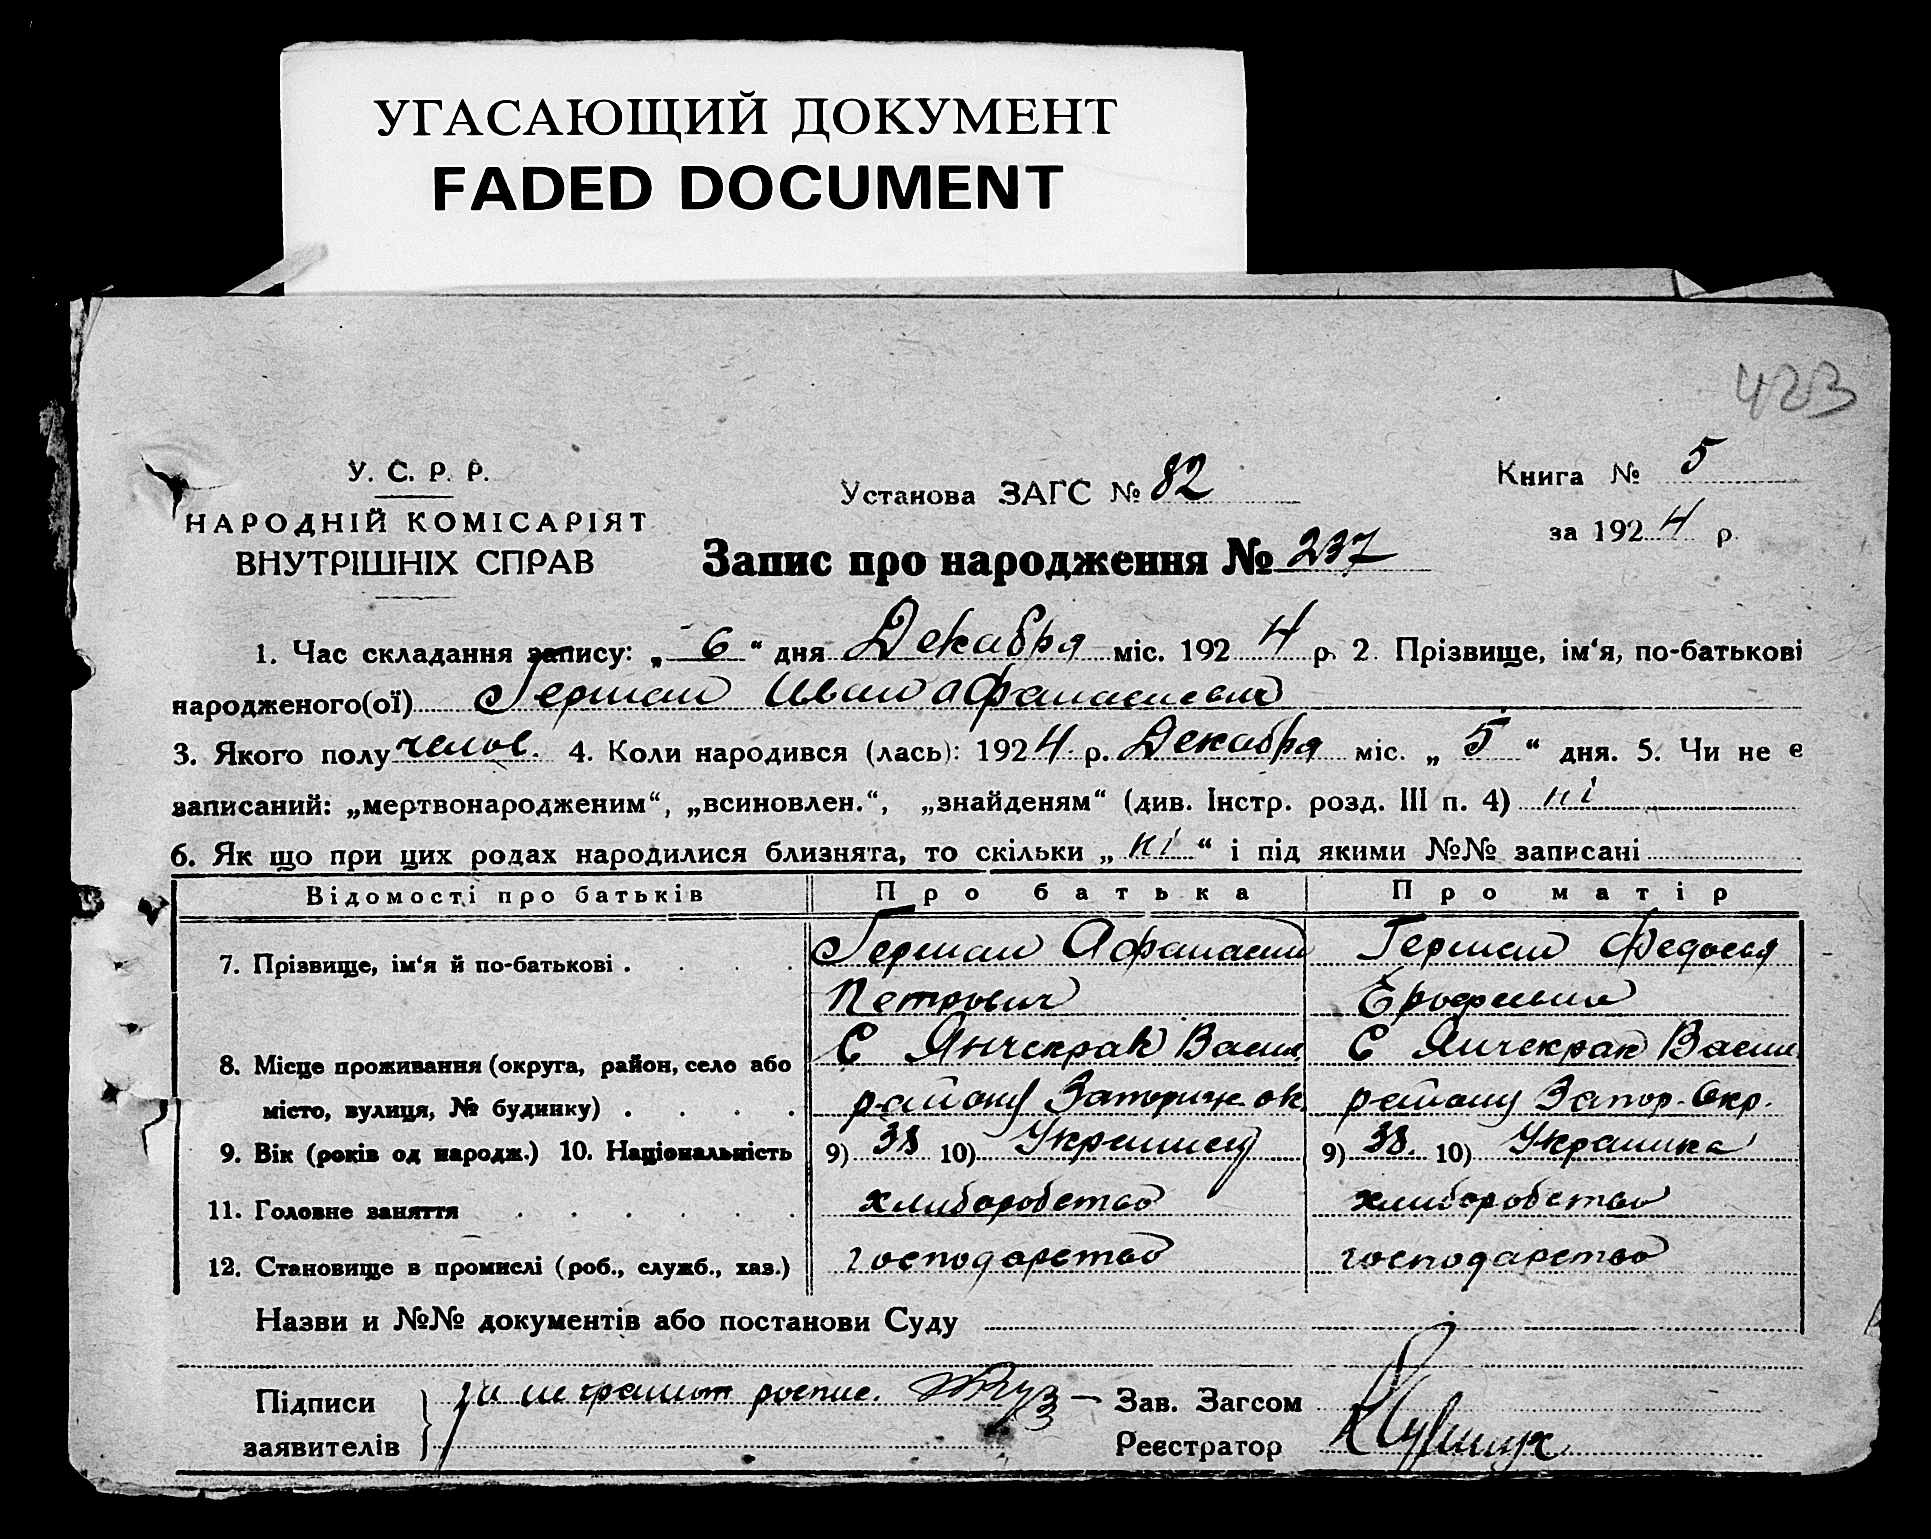 УГАСАЮЩИЙ ДОКУМЕНТ
FADED DOCUMENT
423
У. С. Р. Р.
НАРОДНІЙ КОМІСАРІЯТ
ВНУТРІШНІХ СПРАВ
Установа ЗАГС № 82
Книга № 5
за 1924 р.
Запис про народження № 237
1. Час складання запису: „ 6 “ дня Декабря міс. 1924 р. 2. Прізвище, ім‘я, по-батькові
народженого(ої) Герман Иван Афанасиевич
3. Якого полу челов. 4. Коли народився (лась): 1924 р. Декабря міс. „ 5 “ дня. 5. Чи не є
записаний: „мертвонародженим“, „всиновлен.“, „знайденям“ (див. Інстр. розд. III п. 4) ні
6. Як що при цих родах народилися близнята, то скільки „ ні “ і під якими №№ записані
Відомості про батьків Про батька Про матір
7. Прізвище, ім‘я й по-батькові . . . . Герман Афанасий Герман Федосья
Петрович Ерофеевна
8. Місце проживання (округа, район, село або С Янчекрак Васил. С Янчекрак Васил.
місто, вулиця, № будинку) . . . . району Запориж. ок. району Запор. Окр.
9. Вік (років од народж.) 10. Національність 9) 38 10) Украинец 9) 38. 10) Украинка
11. Головне заняття . . . . . . хлиборобство хлиборобство
12. Становище в промислі (роб., служб., хаз.) господарство господарство
Назви и №№ документів або постанови Суду
Підписи заявителів } за неграмот роспис.
Зав. Загсом
Реєстратор